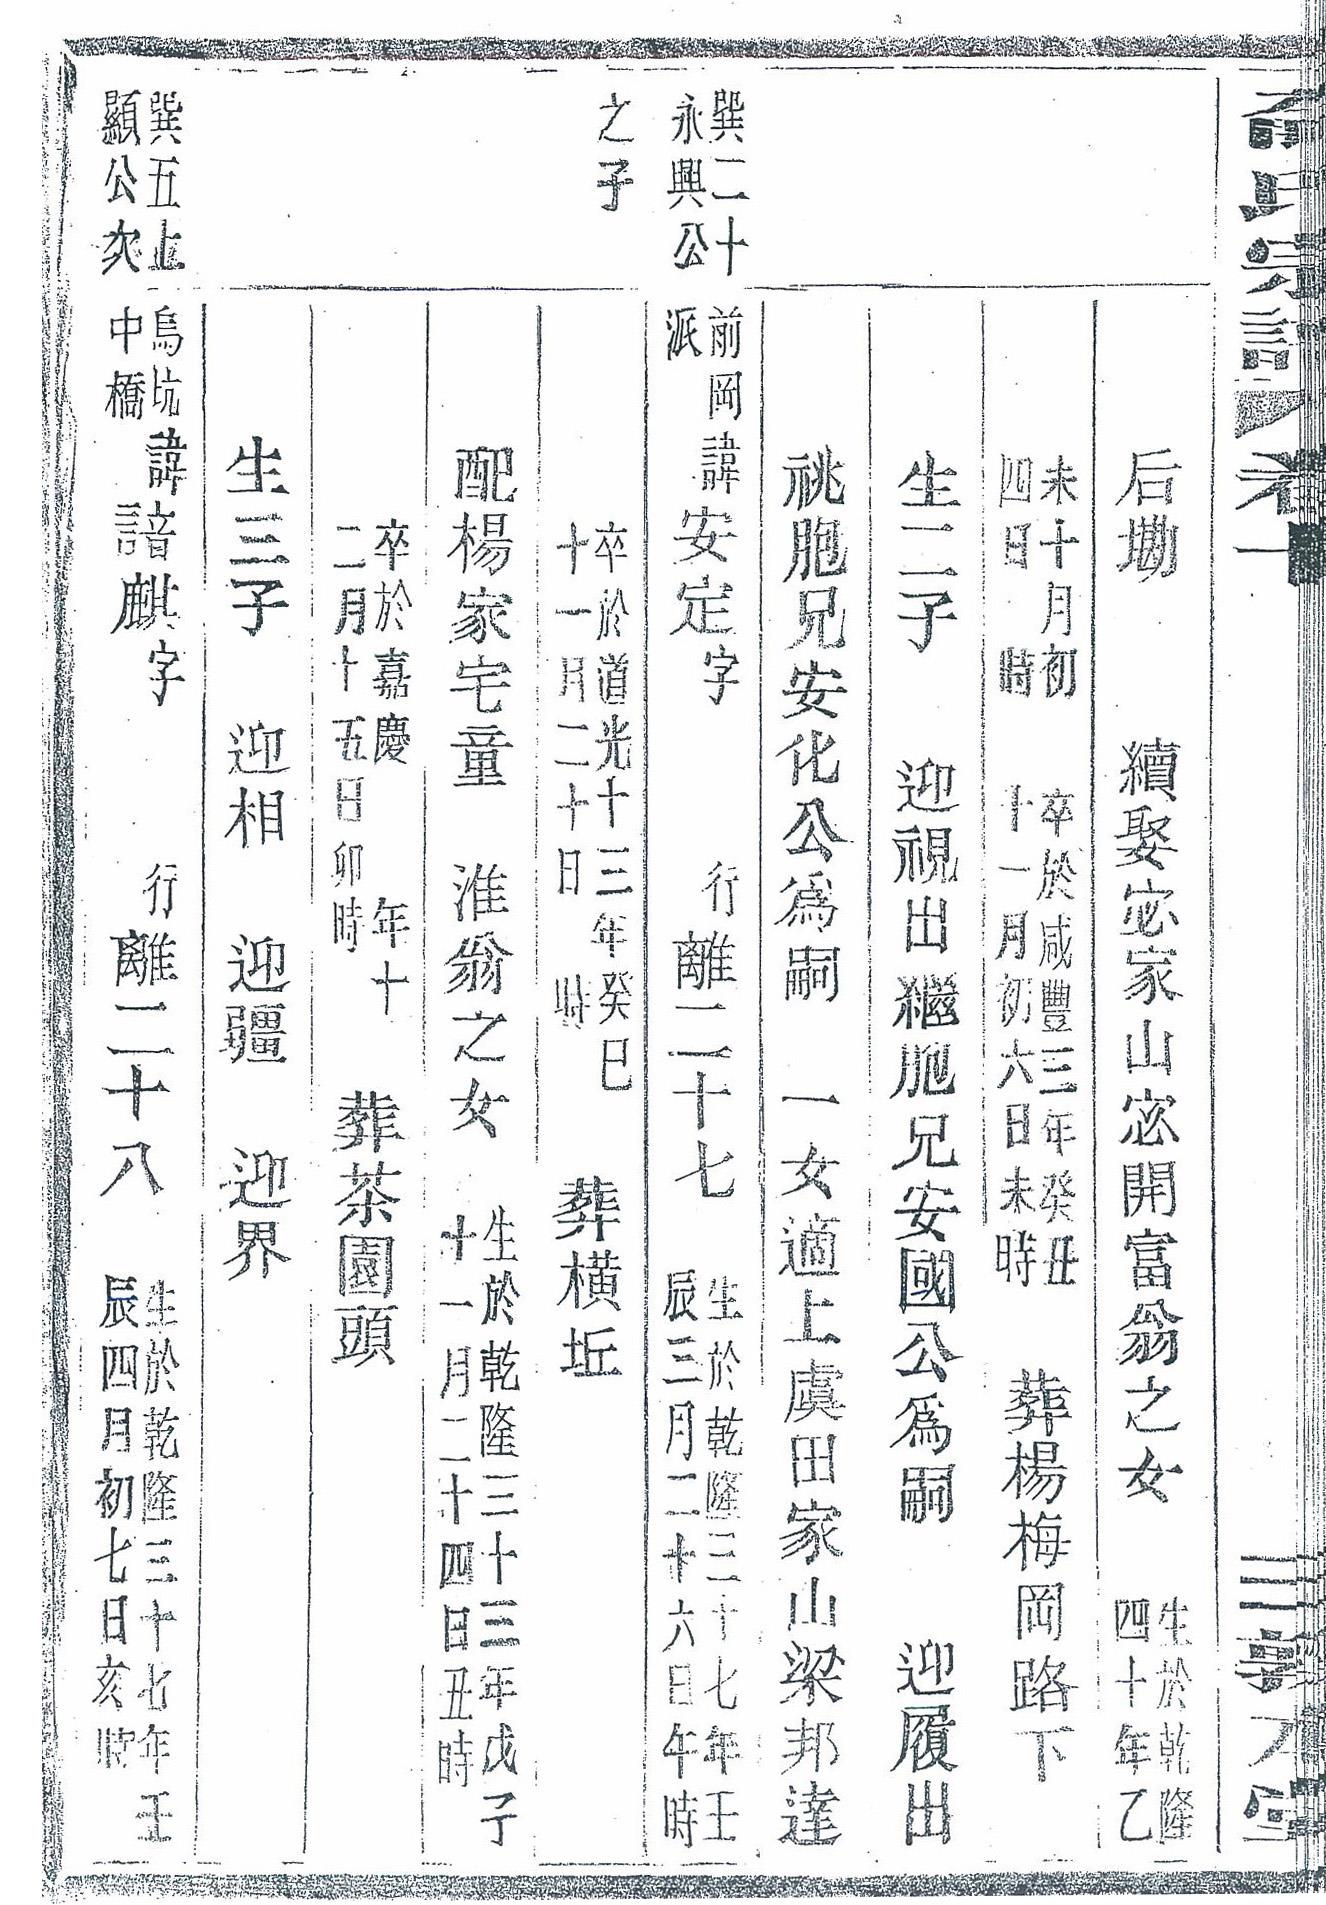 宗譜 卷一
后墈 續娶宓家山宓開富翁之女 生於乾隆四十年乙
未十月初四日 時 卒於咸豐三年癸丑十一月初六日未時 葬楊梅岡路下
生二子 迎視出繼胞兄安國公為嗣 迎履出
祧胞兄安化公為嗣 一女適上虞田家山梁邦達
巽二十永興公之子
前岡派諱安定字 行離二十七 生於乾隆三十七年壬辰三月二十六日午時
卒於道光十三年癸巳十一月二十日 時 葬橫坵
配楊家宅童 淮翁之女 生於乾隆三十三年戊子十一月二十四日丑時
卒於嘉慶 年十二月十五日卯時 葬茶園頭
生三子 迎相 迎疆 迎界
巽五上顯公次
烏坑中橋諱諳麒字 行離二十八 生於乾隆三十七年壬辰四月初七日亥時